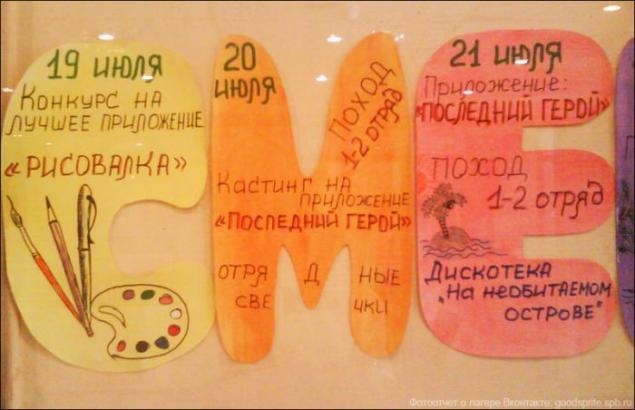 19 июля
Конкурс на
лучшее приложение
«Рисовалка»
20
июля
Поход
1-2 отряд
Кастинг на
приложение
«Последний герой»
отря д ные
све чки
21 июля
Приложение:
«Последний герой»
поход
1-2 отряд
Дискотека
„На необитаемом
острове"
Фотоотчет о лагере Вконтакте: goodsprite.spb.ru